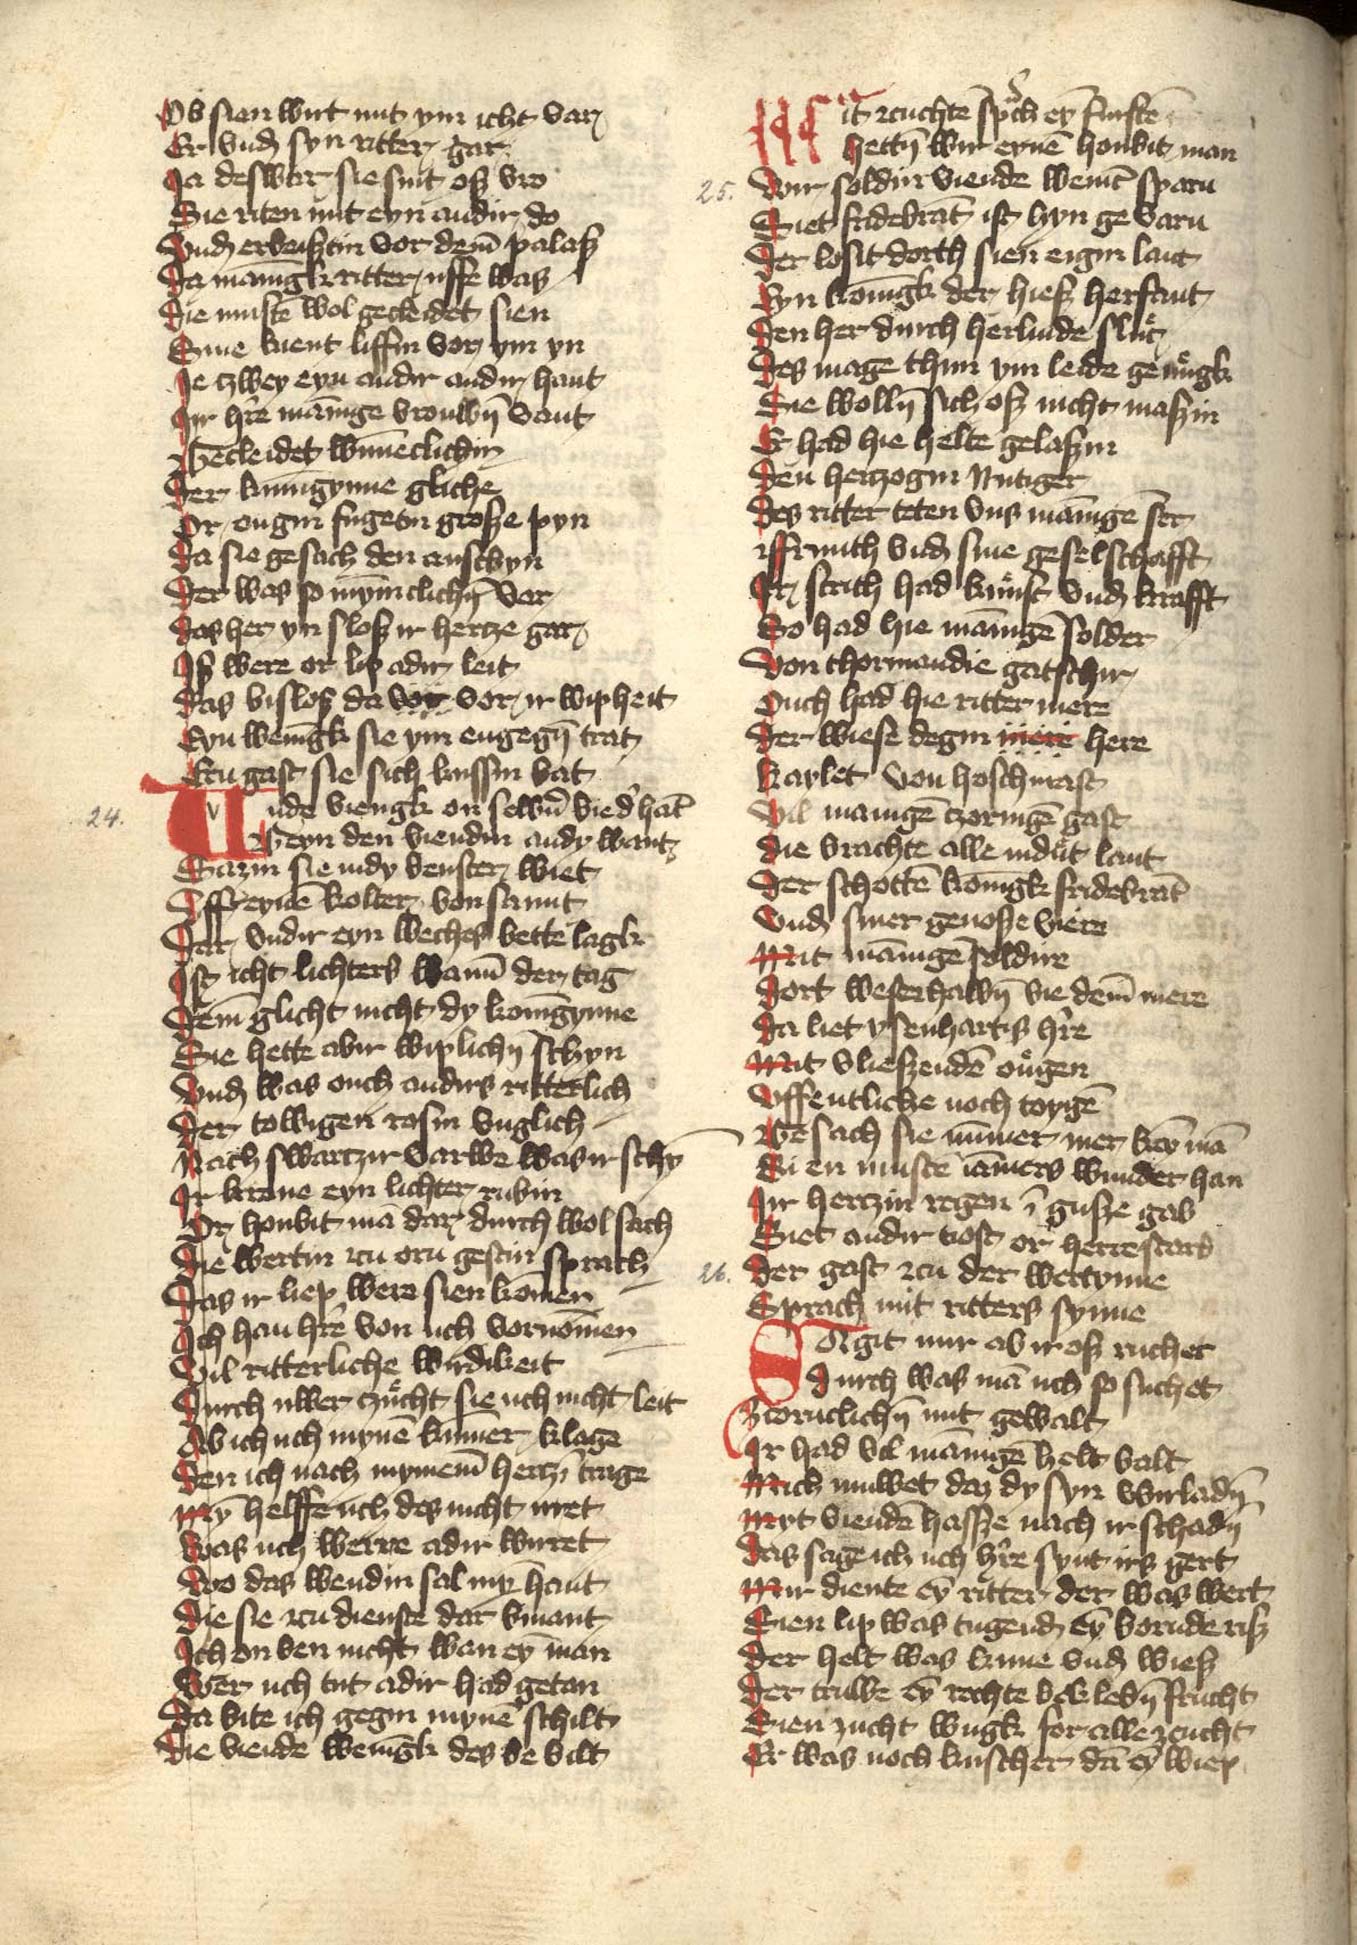 Ob sien wirt mit ym icht var
Er vnd syn ritter gar
Ja deswar sie sint osz vro
Sie riten mit eyn andir do
Vnd erbeisztin vor dem̄ palasz
Da mānigk ritter uffe was
Die muste wol gecleidet sien
Sine kient liffin vor ym yn
Je tzwey eyn andir andir hant
Jr hr̄e mānige vrouwn̄ vant
Gecleidet wūneclichin
Der kuningynne gliche
Or ougin fugetin grosze pyn
Da sie gesach den anschyn
Der was so mȳniclichn̄ var
Das her yn slosz ir hertze gar
Jsz were or lip adir leit
Das bislosz da vor vor ir wipheit
Eyn wenīgk sie ym engegn̄ trat
Ern gast sie sich kussin bat
24.
Unde viengk on selwir bie d' hāt
Geyn den viendin andy want
Sazin sie indy venster wiet
Uff eynē kolter von samit
Dar vndir eyn weches bette lagk
Jst icht lichters wann̄ der tag
Dem̄ glicht nicht dy konīgynne
Sie hette abir wiplichn̄ schyn
Vnd was ouch andirs ritterlich
Der towigen rosin vnglich
Nach swartzir varwe was ir schȳ
Jr krone eyn lichter rubin
Or houbit mā dar durch wol sach
Die wertin zcu orn gestin sprach
Das ir liep were sien komen
Jch han hr̄e von uch vornomen
Vil ritterliche wirdikeit
Durch uwer zůcht sie uch nicht leit
Ab ich uch mynē kūmer klage
Den ich nach mynem̄ hertzī trage
Mȳ helffe uch des nicht irret
Was uch werre adir wirret
Wo das wendin sal myn hant
Die sie zcu dienste dar benant
Jch on ben nicht wan eȳ man
Wer uch tut adir had getan
Da bite ich gegin mynē schilt
Die viende wenīgk des be vilt
Mit zcuchtē sprach eȳ furstē
Hettn̄ wir eynē houbit man
25.
Wir soldin viende wenic sparn
Siet fridebrāt ist hyn gevarn
Der losit dorth sien eigin lant
Eyn konīgk der hiesz hernant
Den her durch herlinde slůc
Des mage thun ym leide genůgk
Sie wolln̄ sich osz nicht maszin
Er had hie helte gelaszin
Den hertzogin Hutiger
Des ritter teten vns mānige ser
Uffruith vnd sine geselschafft
Jr strith had kůnst vnd krafft
So had hie mānigē solder
Von thormandie gatschir
Ouch had hie ritter mere
Der wiese degin mere here
Kaylet von hoschurast
Vil manigē tzornigē gast
Die brachte alle indůt lant
Der schottē konīgk fridebrāt
Vnd siner genosse viere
Mit mānigē soldire
Dort westerhalwn̄ bie dem̄ mere
Da liet ysenhartis hr̄e
Mit vlieszendē ougen
Uffentliche noch toygē
We sach sie nūmer mer keȳ mā
Sie en muste iāmers wunder han
Jr hertzin regen ī gusze gab
Siet andir tiost or herre starb
26.
Der gast zcu der wertynne
Sprach mit ritters synne
Sagit mir ab ir osz ruchet
Durch was mā uch so suchet
Zcorniclichn̄ mit gewalt
Jr had vil mānigē helt balt
Mich muwet daz dy syn virladn̄
Myt viendē hassze nach ir schadn̄
Das sage ich uch hr̄e synt irs gert
Mir diente eȳ ritter der was wert
Sien lip was tugend eȳ bornde risz
Der helt was kune vnd wiesz
Der truwe eȳ rechte bekledn̄ frucht
Sien zucht wugk for alle zcucht
Er was noch kuscher dā eȳ wiep